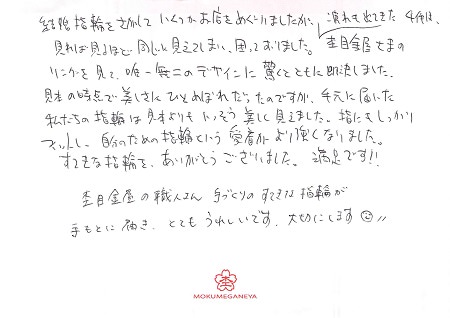 結婚指輪をさがして いくつかお店をめぐりましたが、疲れも出てきた 4件目、
見れば見るほど 同じに見えてしまい、困っておりました。 杢目金屋さまの
リングを見て、唯一無二のデザインに 驚くとともに即決しました。
見本の時点で 美しさに ひとめぼれだったのですが、手元に届いた
私たちの指輪は 見本よりも いっそう 美しく見えました。 指にも しっかり
フィットし、自分のための指輪という 愛着が より強くなりました。
すてきな指輪を、ありがとう ございました。 満足です!!
杢目金屋の職人さん 手づくりの すてきな指輪が
手もとに 届き、とても うれしいです。大切にします
MOKUMEGANEYA